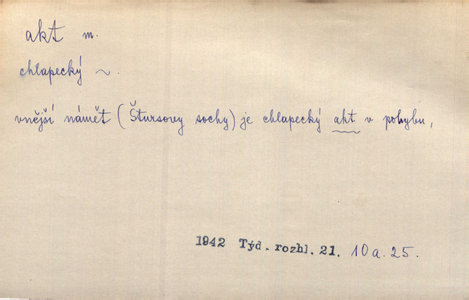 akt m.
chlapecký ~.
vnější námět (Štursovy sochy) je chlapecký akt v pohybu,
1942 Týd. rozhl. 21. 10a.25.